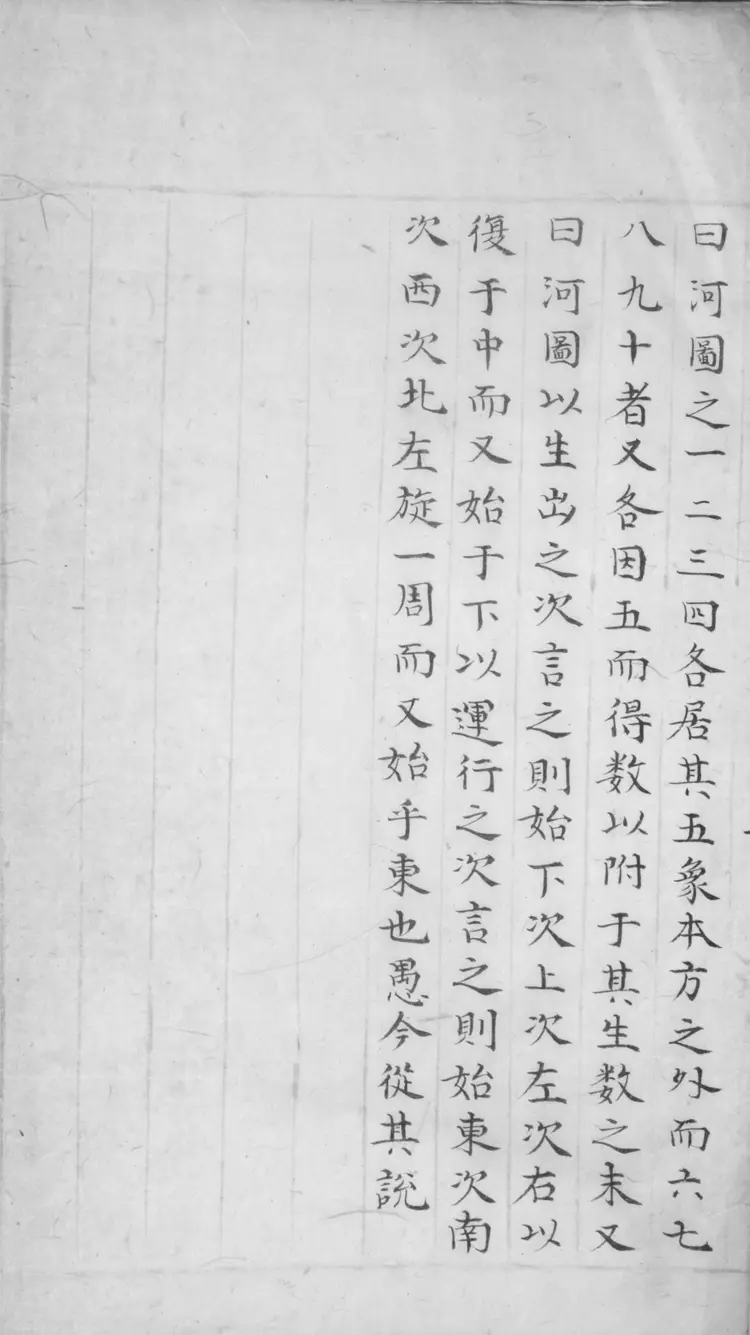 曰河圖之一二三四各居其五象本方之外而六七
八九十者又各因五而得数以附于其生数之末又
曰河圖以生出之次言之則始下次上次左次右以
復于中而又始于下以運行之次言之則始東次南
次西次北左旋一周而又始乎東也愚今從其説